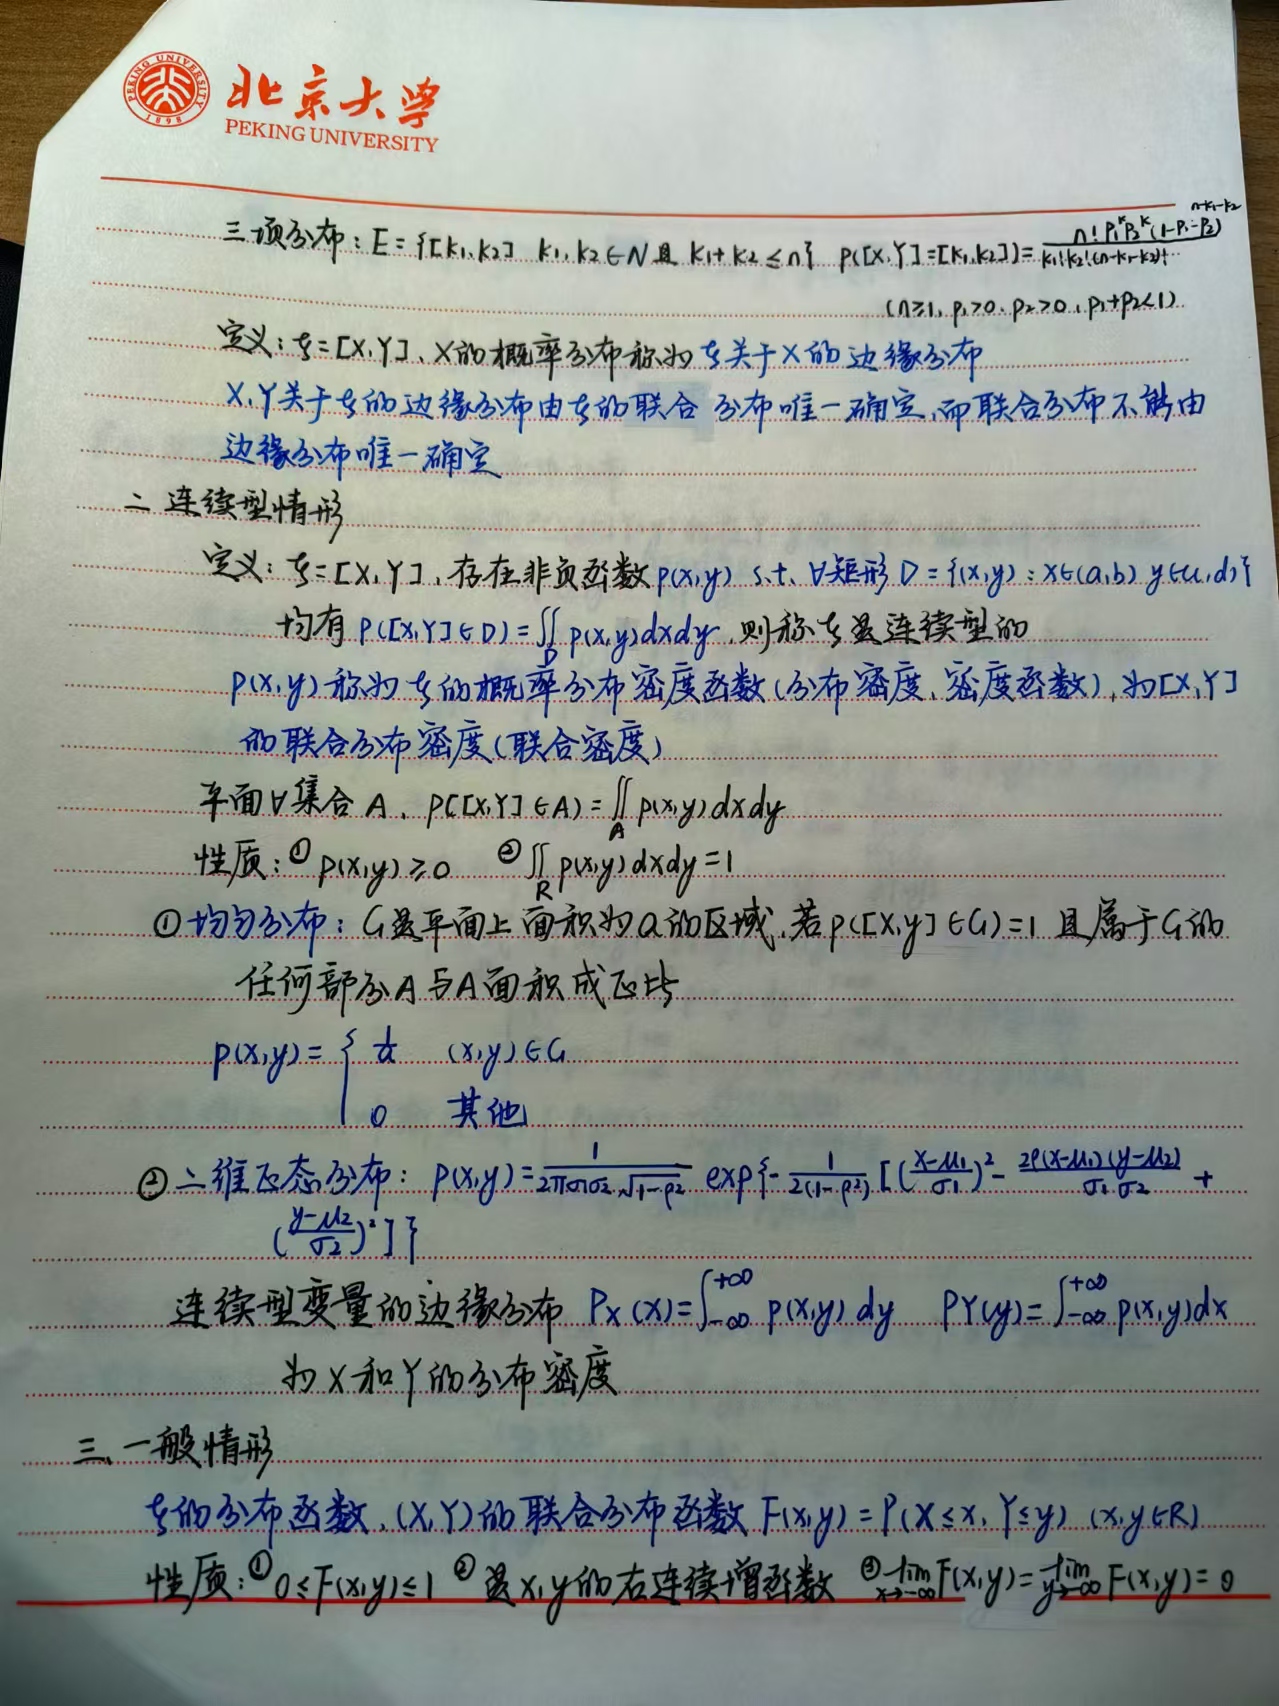 北京大学
PEKING UNIVERSITY
PEKING UNIVERSITY 1898
三项分布：E={[k₁,k₂] k₁,k₂∈N且 k₁+k₂≤n} P([X,Y]=[k₁,k₂])= n! p₁ᵏ p₂ᵏ (1-p₁-p₂)^(n-k₁-k₂) / k₁!k₂!(n-k₁-k₂)!
(n≥1, p₁>0, p₂>0, p₁+p₂<1)
定义：ξ=[X,Y]、X的概率分布称为ξ关于X的边缘分布
X,Y关于ξ的边缘分布由ξ的联合分布唯一确定,而联合分布不能由
边缘分布唯一确定
二 连续型情形
定义：ξ=[X,Y],存在非负函数p(x,y) s.t. ∀矩形D={(x,y):x∈(a,b) y∈(c,d)}
均有P([X,Y]∈D)=∬_D p(x,y)dxdy,则称ξ是连续型的
p(x,y)称为ξ的概率分布密度函数(分布密度,密度函数),为[X,Y]
的联合分布密度(联合密度)
平面∀集合A, P([X,Y]∈A)=∬_A p(x,y)dxdy
性质：① p(x,y)≥0 ② ∬_R p(x,y)dxdy=1
①均匀分布：G是平面上面积为a的区域,若P([X,y]∈G)=1 且属于G的
任何部分A与A面积成正比
p(x,y)={ 1/a (x,y)∈G
0 其他
②二维正态分布：p(x,y)=1/(2πσ₁σ₂√(1-ρ²)) exp{-1/(2(1-ρ²)) [((x-μ₁)/σ₁)² - 2ρ(x-μ₁)(y-μ₂)/(σ₁σ₂) +
((y-μ₂)/σ₂)²]}
连续型变量的边缘分布 P_X(x)=∫_{-∞}^{+∞} p(x,y)dy PY(y)=∫_{-∞}^{+∞} p(x,y)dx
为X和Y的分布密度
三、一般情形
ξ的分布函数,(X,Y)的联合分布函数F(x,y)=P(X≤x,Y≤y) (x,y∈R)
性质：① 0≤F(x,y)≤1 ② 是x,y的右连续增函数 ③ lim_{x→-∞} F(x,y)=lim_{y→-∞} F(x,y)=0